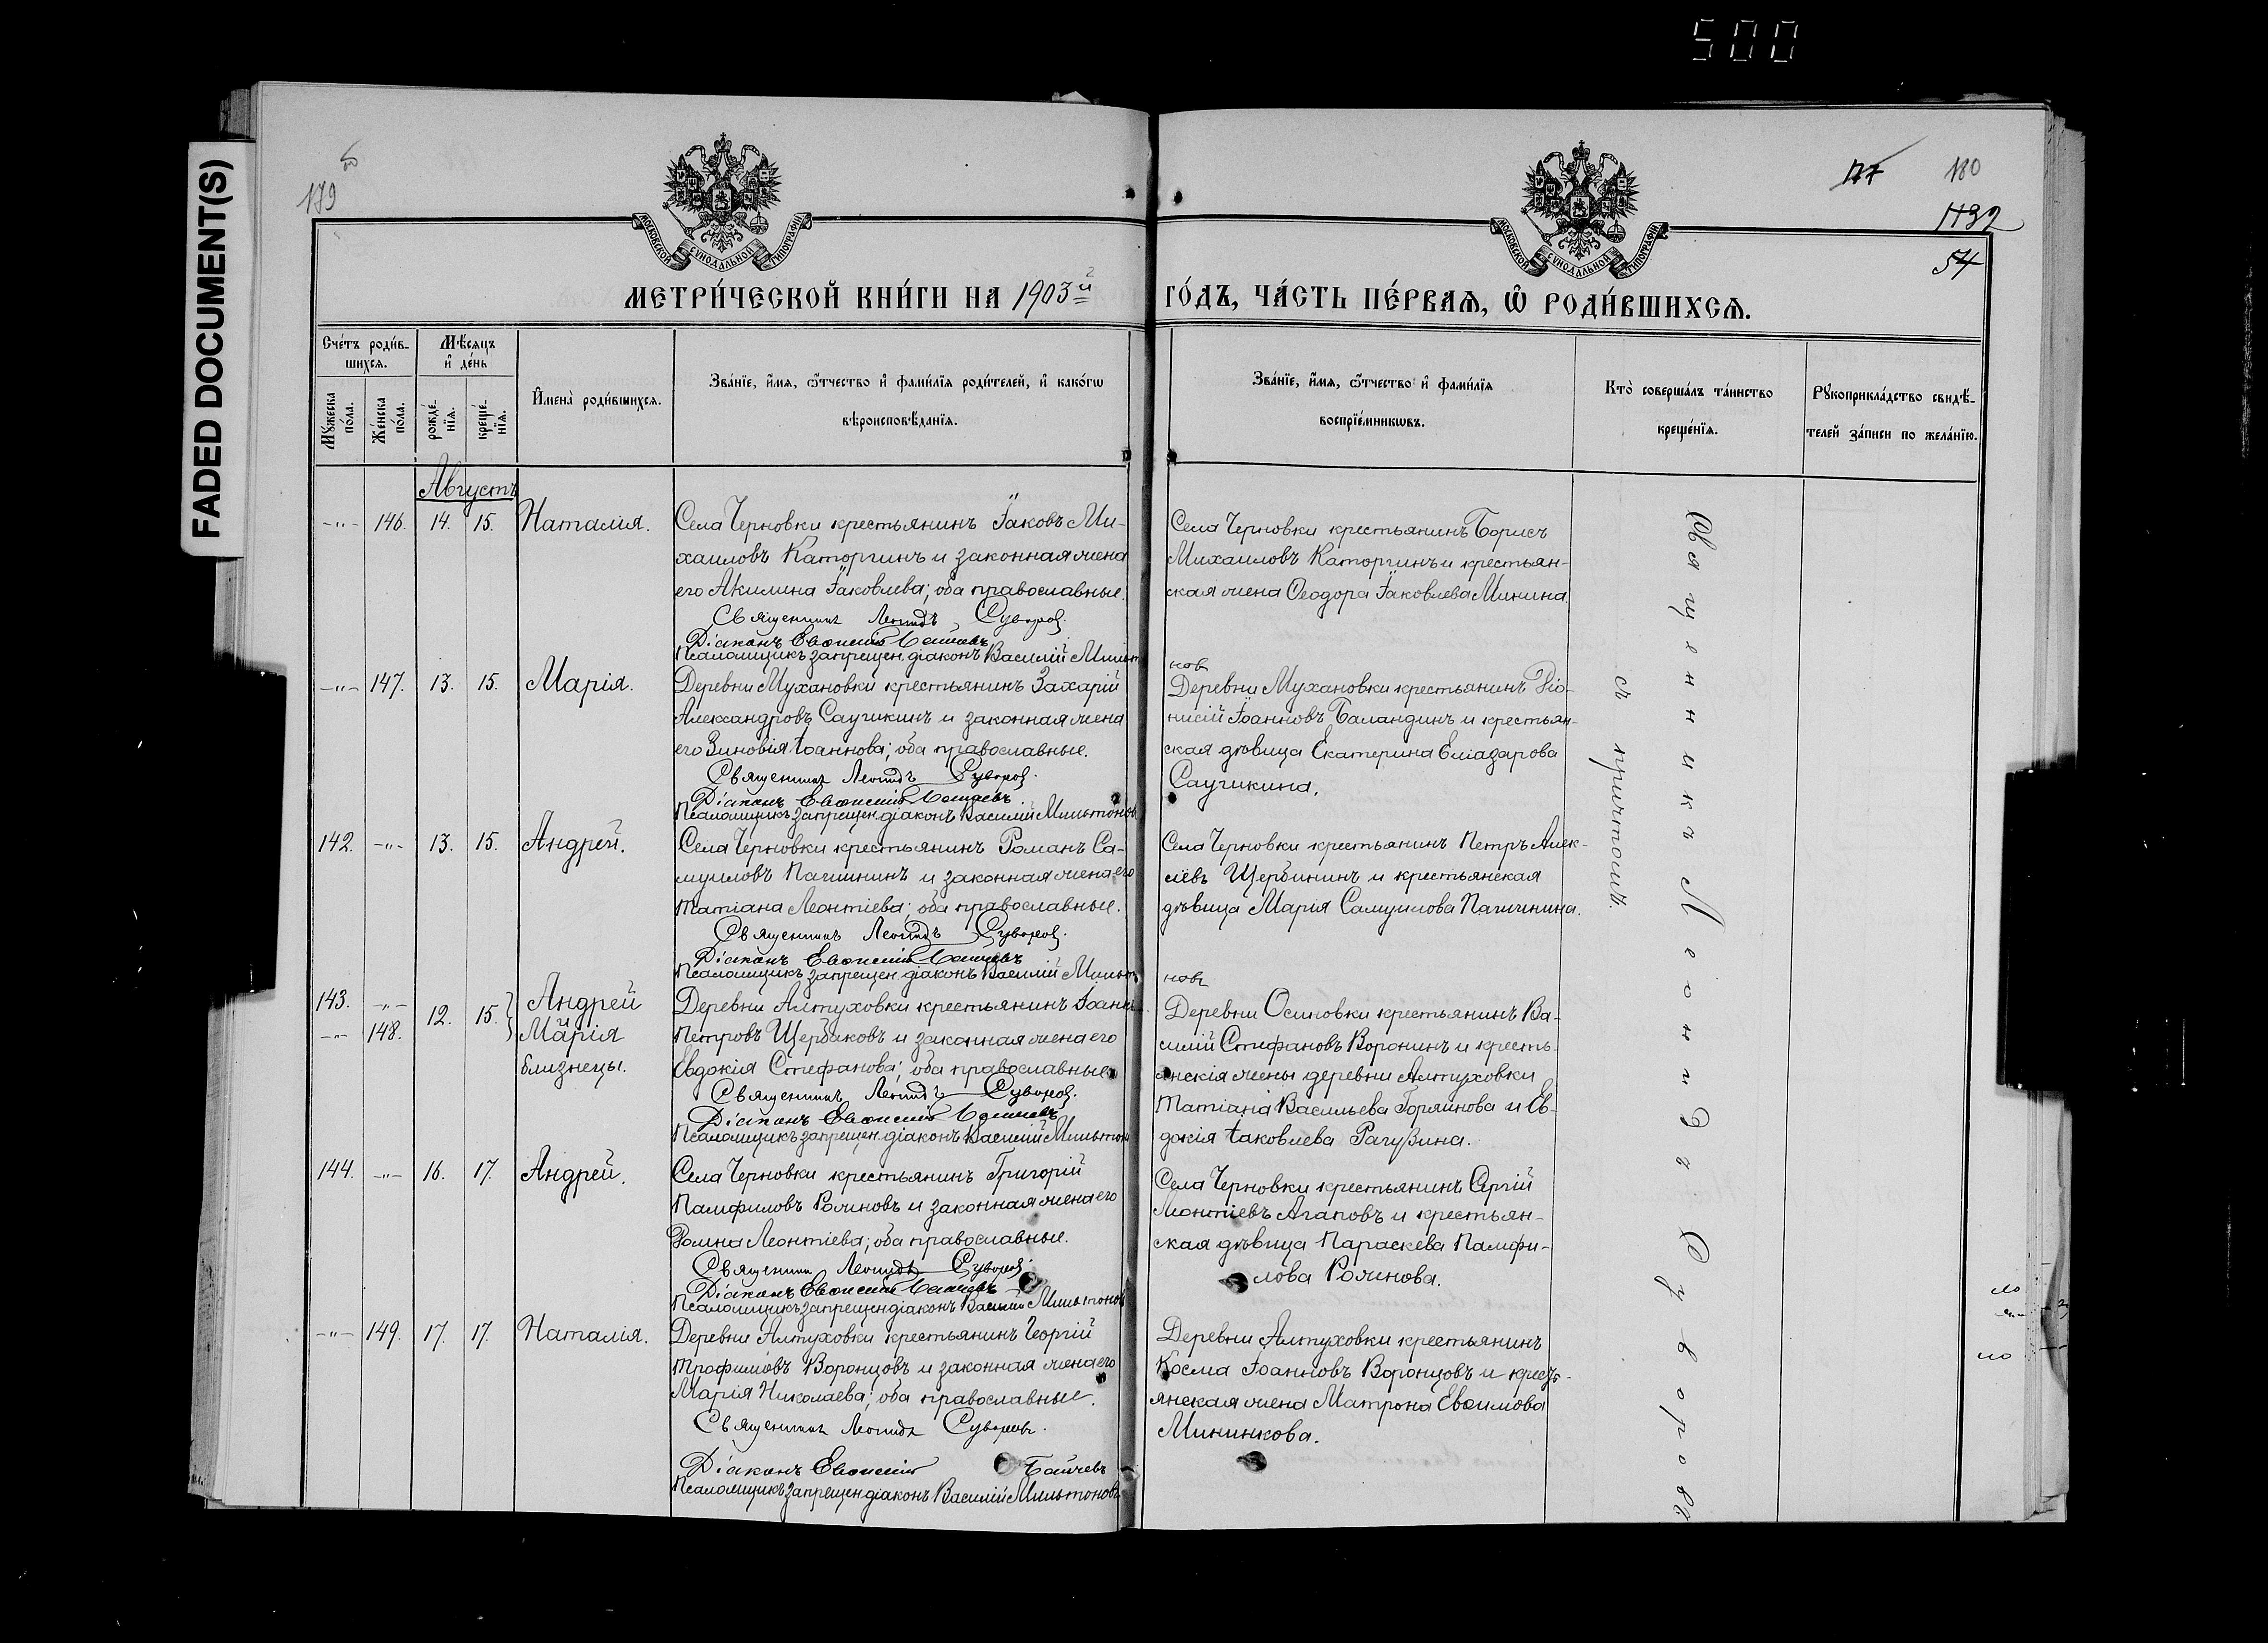 500
FADED DOCUMENT(S)
179
180
1132
54
МОСКОВСКОЙ СѴНОДАЛЬНОЙ ТИПОГРАФІИ
МОСКОВСКОЙ СѴНОДАЛЬНОЙ ТИПОГРАФІИ
МЕТРИ́ЧЕСКОЙ КНИ́ГИ НА 1903й ГО́ДЪ, ЧА́СТЬ ПЕ́РВАѦ, Ѡ҆ РОДИ́ВШИХСѦ.
Сче́тъ роди́в-
шихсѧ.
Мѣ́сѧцъ
и҆ де́нь
Мꙋ́жеска по́ла.
Же́нска по́ла.
рожде́-
нїѧ.
креще́-
нїѧ.
И҆мена̀ роди́вшихсѧ.
Зва́нїе, и҆́мѧ, ѻ҆́тчество и҆ фами́лїѧ роди́телей, и҆ како́гѡ
вѣроисповѣ́данїѧ.
Зва́нїе, и҆́мѧ, ѻ҆́тчество и҆ фами́лїѧ
воспрїе́мникѡвъ.
Кто̀ соверша́лъ та́инство
креще́нїѧ.
Рꙋкоприкла́дство свидѣ́-
телей за́писи по жела́нїю.
Августъ
-"- 146. 14. 15. Наталія.
Села Черновки крестьянинъ Іаковъ Ми-
хаиловъ Каторгинъ и законная жена
его Акилина Іаковлева; оба православные.
Священникъ Леонидъ Суворов.
Діаконъ Евѳимій
Псаломщикъ запрещен. діаконъ Василій Мильто
нов
Села Черновки крестьянинъ Борисъ
Михаиловъ Каторгинъ и крестьян-
ская жена Ѳеодора Іаковлева Минина.
-"- 147. 13. 15. Марія.
Деревни Мухановки крестьянинъ Захарій
Александровъ Саушкинъ и законная жена
его Зиновія Іоаннова; оба православные.
Священникъ Леонидъ Суворов.
Діаконъ Евѳимій
Псаломщикъ запрещен. діаконъ Василій Мильтонов
Деревни Мухановки крестьянинъ Діо-
нисій Іоанновъ Баландинъ и крестьян-
ская дѣвица Екатерина Елиазарова
Саушкина.
142. -"- 13. 15. Андрей.
Села Черновки крестьянинъ Романъ Са-
муиловъ Пачининъ и законная жена его
Татіана Леонтіева; оба православные.
Священникъ Леонидъ Суворов.
Діаконъ Евѳимій
Псаломщикъ запрещен. діаконъ Василій Мильто
новъ
Села Черновки крестьянинъ Петръ Алек-
сіевъ Щербининъ и крестьянская
дѣвица Марія Самуилова Пачинина.
143. -"- 12. 15. Андрей
-"- 148. и Марія
близнецы.
Деревни Алтуховки крестьянинъ Іоаннъ
Петровъ Щербаковъ и законная жена его
Евдокія Стефанова; оба православные
Священникъ Леонидъ Суворов.
Діаконъ Евѳимій
Псаломщикъ запрещен. діаконъ Василій Мильтонов
Деревни Осиновки крестьянинъ Ва-
силій Стефановъ Воронинъ и кресть-
янскія жены деревни Алтуховки
Татіана Васильева Горяинова и Ев-
докія Іаковлева Рагузина.
144. -"- 16. 17. Андрей.
Села Черновки крестьянинъ Григорій
Памфиловъ Рожновъ и законная жена его
Домна Леонтіева; оба православные.
Священникъ Леонидъ Суворов.
Діаконъ Евѳимій
Псаломщикъ запрещен діаконъ Василій Мильтонов
Села Черновки крестьянинъ Сергій
Леонтіевъ Агаповъ и крестьян-
ская дѣвица Параскева Памфи-
лова Рожнова.
-"- 149. 17. 17. Наталія.
Деревни Алтуховки крестьянинъ Георгій
Трофимовъ Воронцовъ и законная жена его
Марія Николаева; оба православные.
Священникъ Леонидъ Суворовъ.
Діаконъ Евѳимій Байчевъ
Псаломщикъ запрещен діаконъ Василій Мильтоновъ
Деревни Алтуховки крестьянинъ
Косма Іоанновъ Воронцовъ и кресть-
янская жена Матрона Евѳимова
Мининкова.
Священникъ Леонидъ Суворовъ
съ причтомъ.